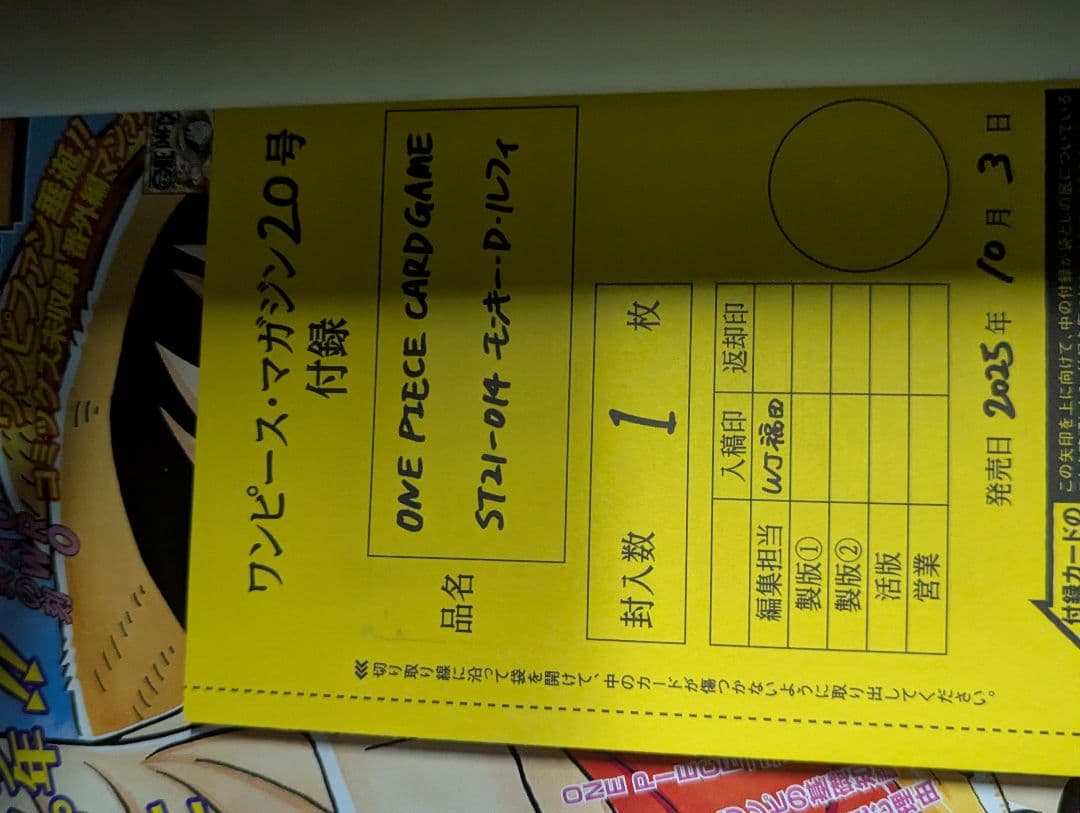 ワンピース・マガジン20号
付録
品名
ONE PIECE CARDGAME
ST21-014 モンキー・D・ルフィ
封入数 1 枚
入稿印 返却印
編集担当 WJ福田
製版①
製版②
活版
営業
発売日 2025年 10月 3日
⋘切り取り線に沿って袋を開けて、中のカードが傷つかないように取り出してください。
付録カードの
この矢印を上に向けて、中の付録が袋の底についている
ワンピファン垂涎!!
コミックス未収録 番外編マンガ
ONE PIECE